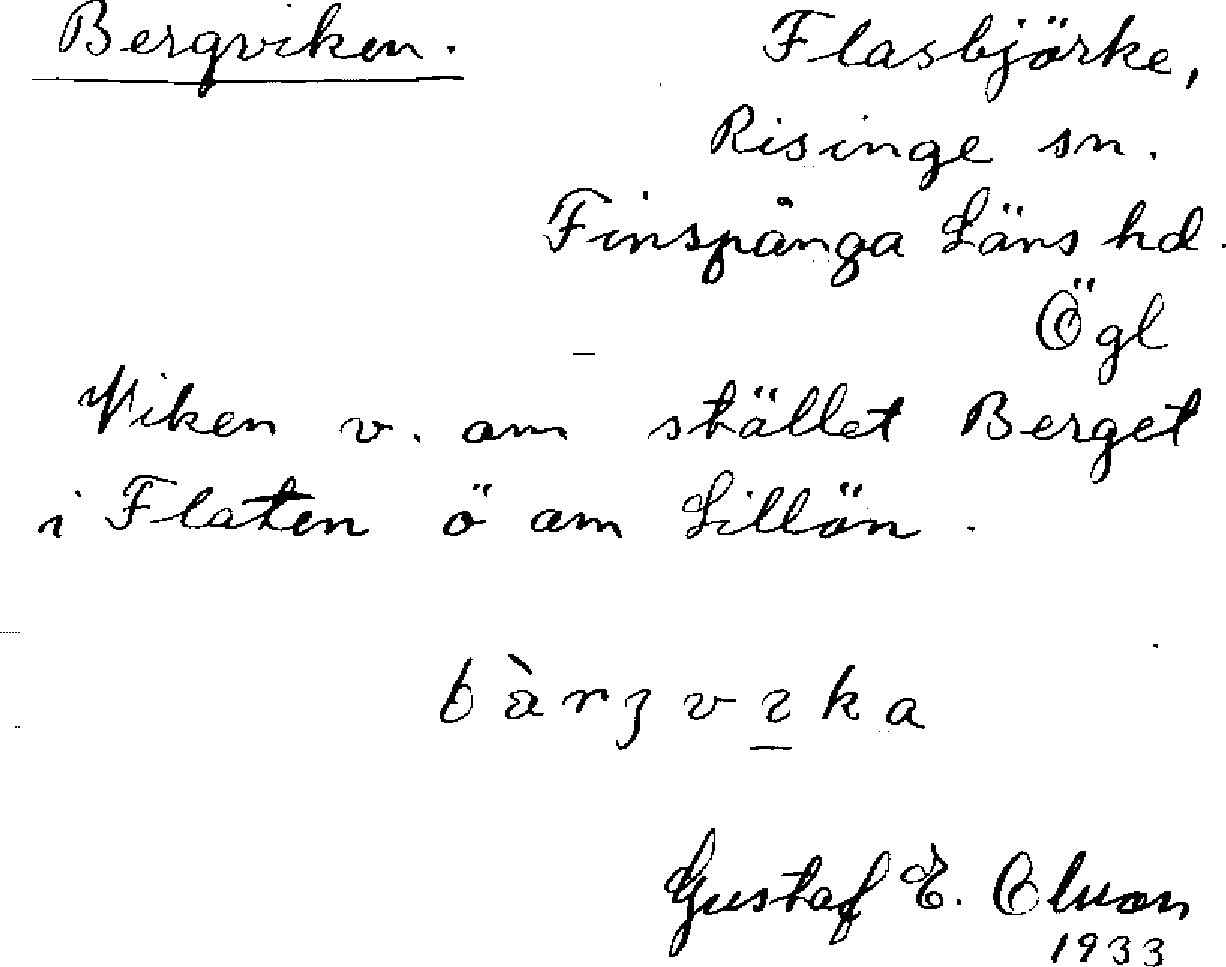 Bergviken.
Flasbjörke,
Risinge sn.
Finspånga Läns hd.
Ögl
Viken v. om stället Berget
i Flaten ö om Lillön.
bàrʒvıka
Gustaf E. Olsson
1933